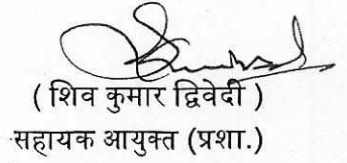 ( शिव कुमार द्विवेदी )
सहायक आयुक्त (प्रशा.)